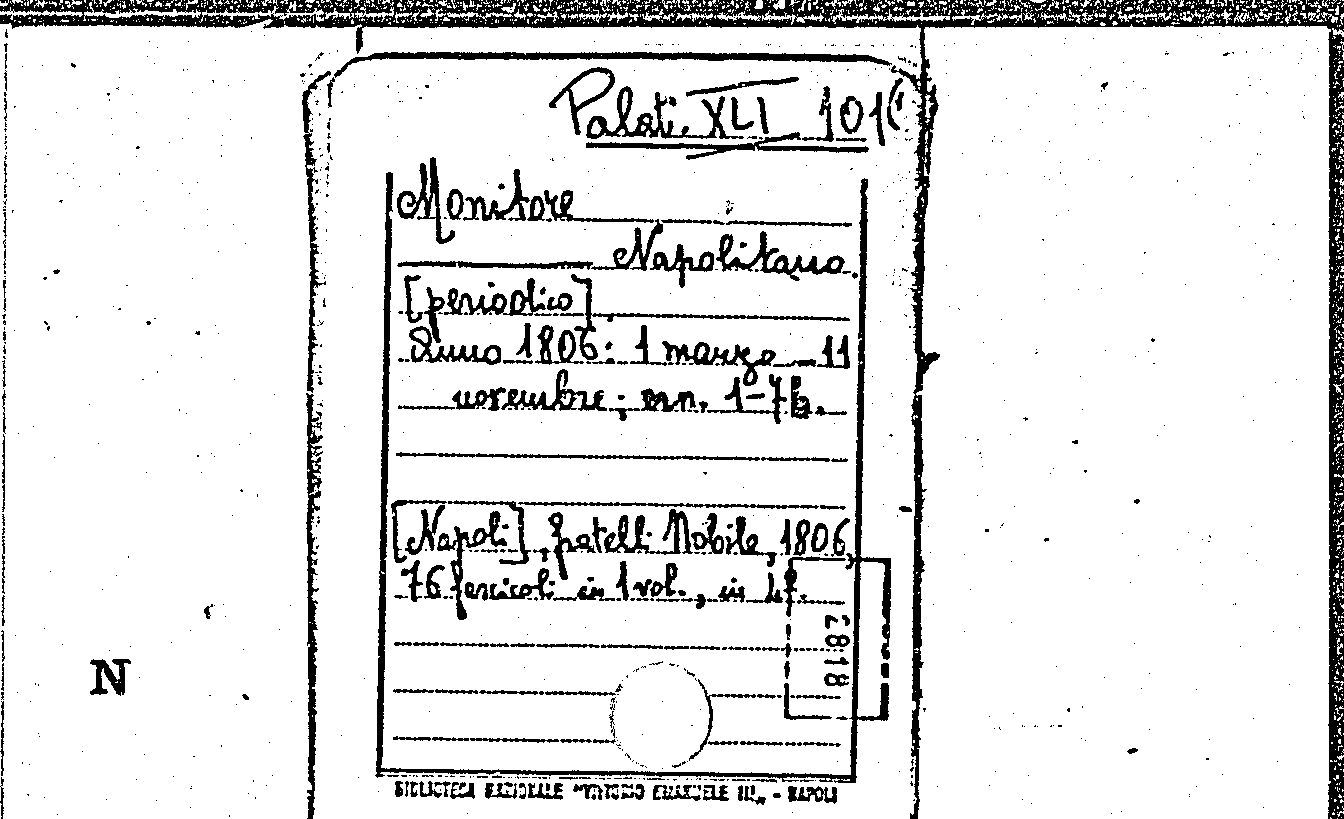 Palat. XLI 101(1
Monitore
Napolitano.
[periodico].
Anno 1806: 1 marzo - 11
novembre; nn. 1-76.
[Napoli], fratelli Nobile, 1806,
76 fascicoli in 1 vol., in 4º.
2818
N
BIBLIOTECA NAZIONALE "VITTORIO EMANUELE III„ - NAPOLI